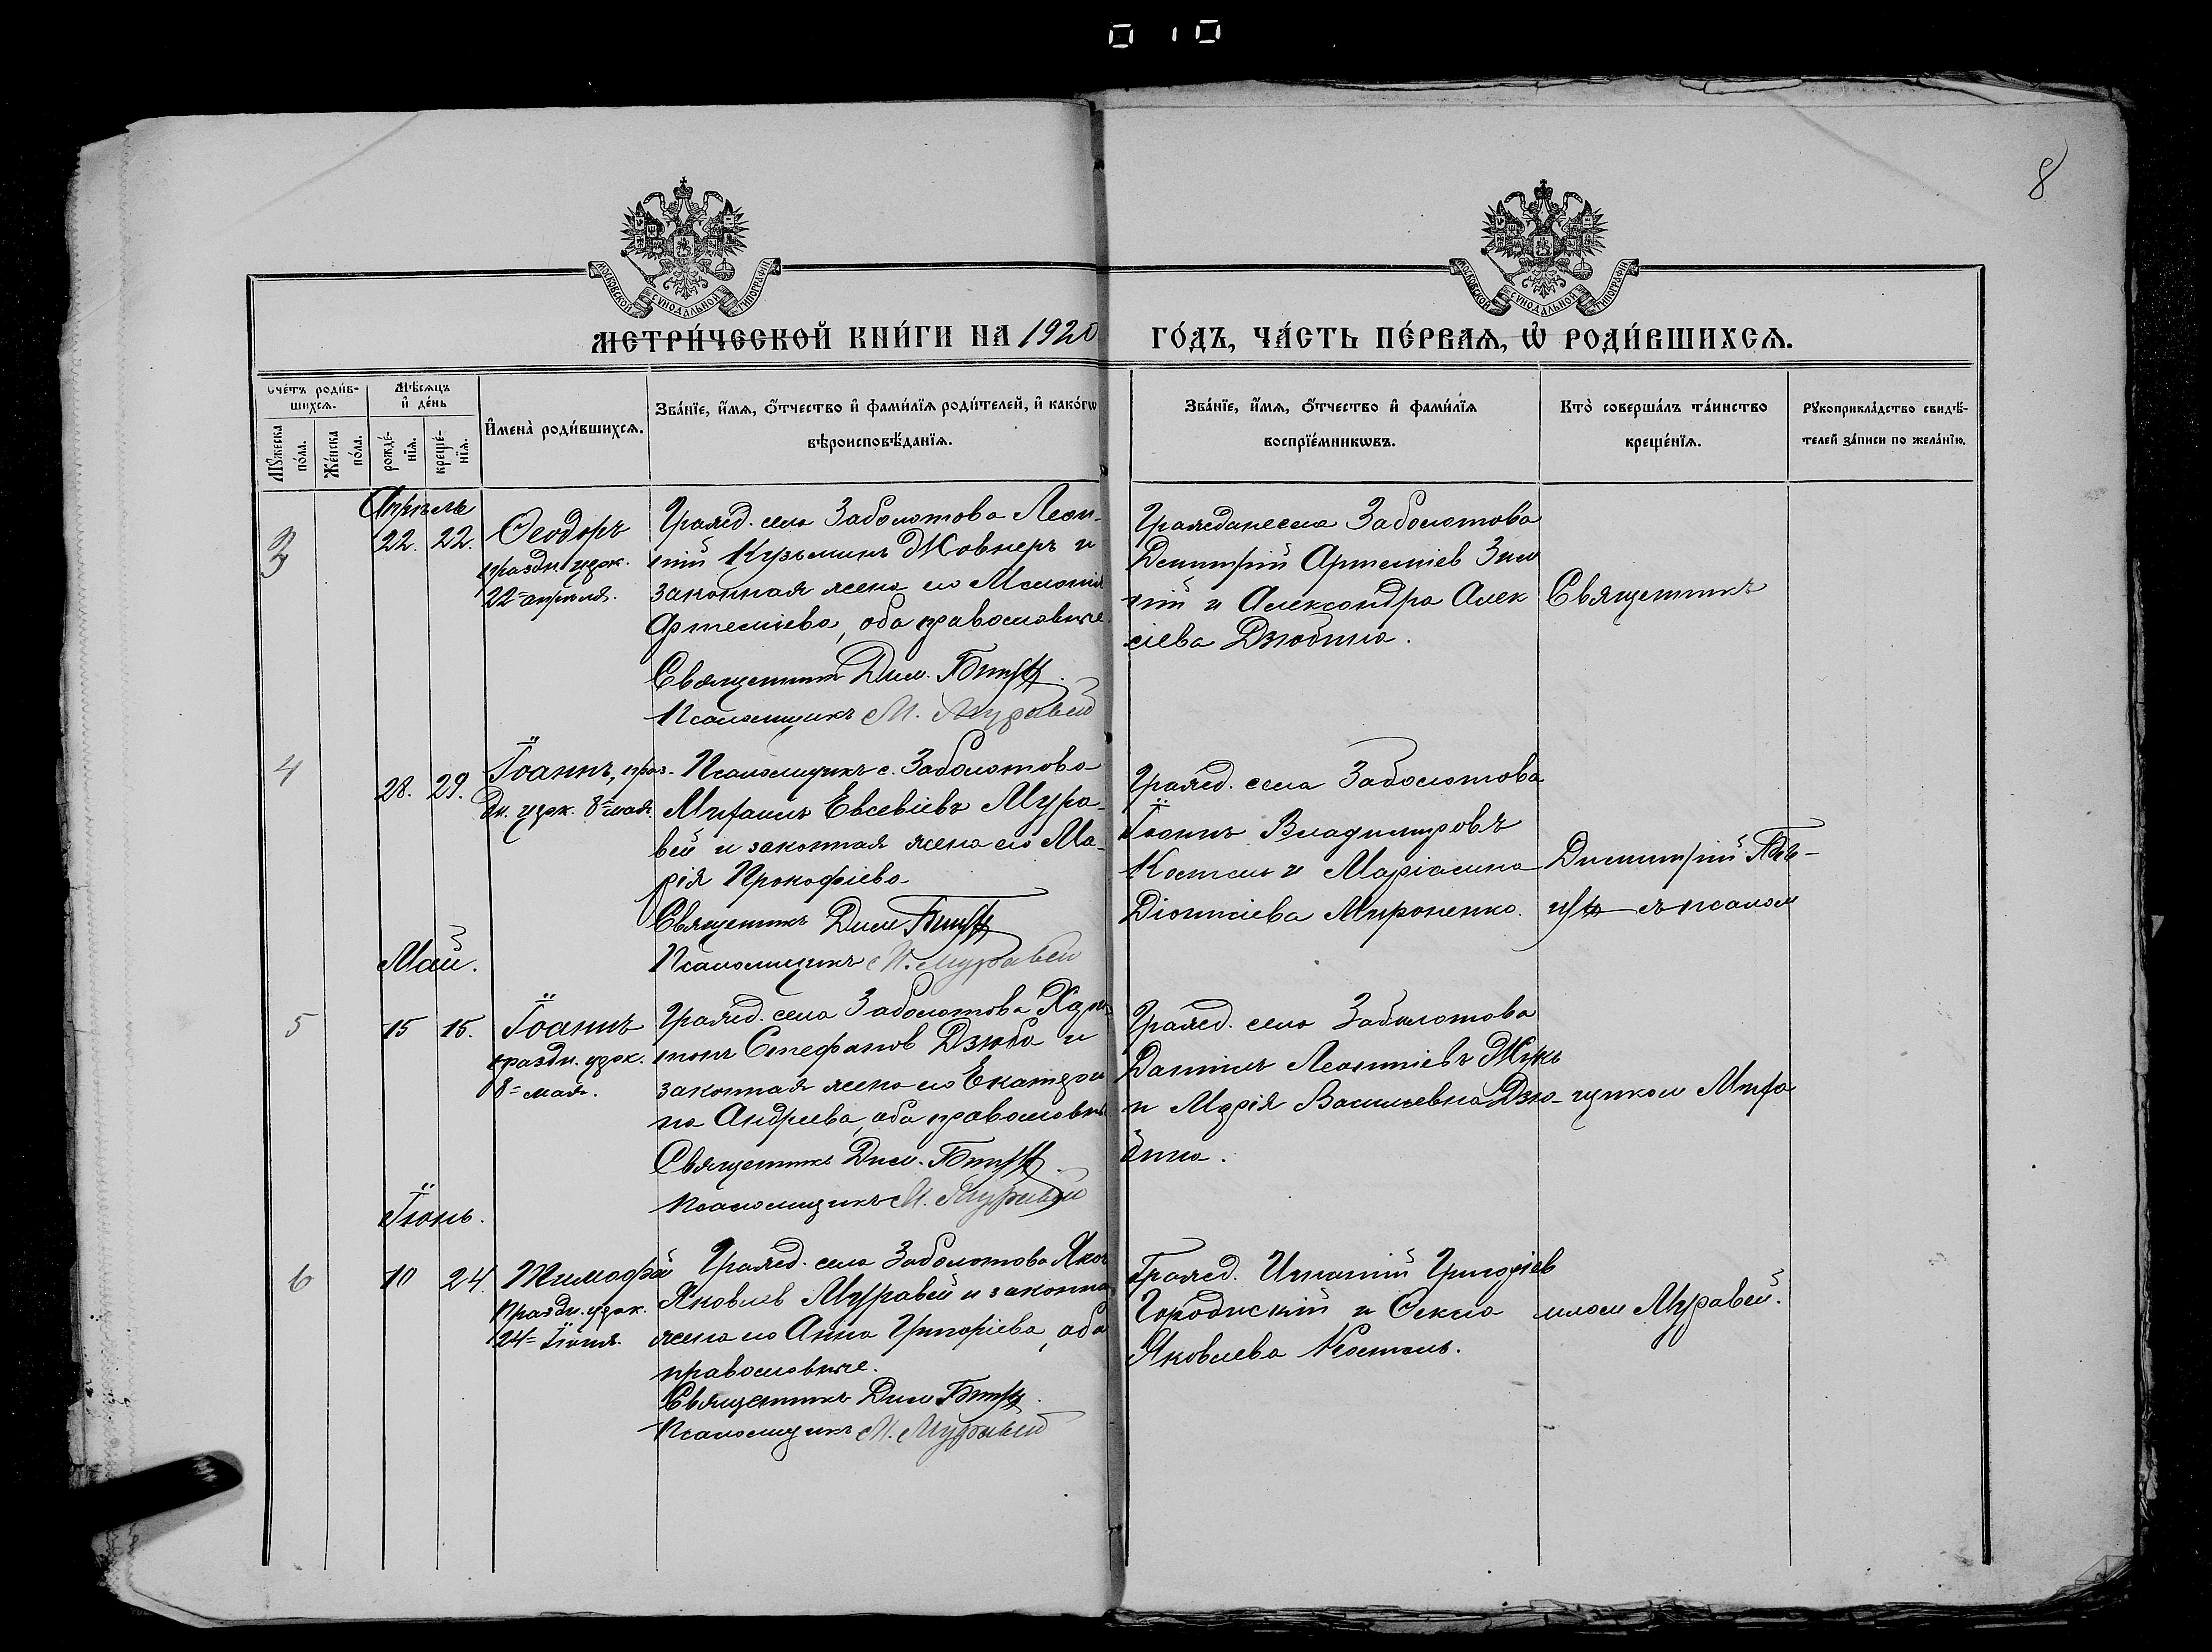 010
8
МОСКОВСКОЙ СУНОДАЛЬНОЙ ТИПОГРАФІИ
МОСКОВСКОЙ СУНОДАЛЬНОЙ ТИПОГРАФІИ
МЕТРИ́ЧЕСКОЙ КНИ́ГИ НА 1920 ГО́ДЪ, ЧА́СТЬ ПЕ́РВАѦ, Ѿ РОДИ́ВШИХСѦ.
Счéтъ роди́в-
шихсѧ.
Мꙋ́жеска по́ла.
Же́нска по́ла.
Мѣ́сѧцъ и҆ де́нь
рожде́-нїѧ.
креще́-нїѧ.
И҆мена̀ роди́вшихсѧ.
Зва́нїе, и҆́мѧ, ѻ҆́тчество и҆ фами́лїѧ роди́телей, и҆ како́гѡ
вѣроисповѣ́данїѧ.
Зва́нїе, и҆́мѧ, ѻ҆́тчество и҆ фами́лїѧ
воспрїе́мникѡвъ.
Кто̀ соверша́лъ та́инство
креще́нїѧ.
Рꙋкоприкла́дство свидѣ́-
телей за́писи по жела́нїю.
Апрѣль
3
22. 22.
Ѳеодоръ
праздн. церк.
22 апрѣля.
Гражд. села Заболотова Леон-
тій Кузьминъ Жовнеръ и
законная жена его Меланія
Артеміева, оба православные.
Священникъ Дим.
Псаломщикъ М. Муравей
Граждане села Заболотова
Димитрій Артеміев
и Александра Алек
сіева Дзюбина.
Священникъ
4
28. 29.
Іоаннъ, праз-
дн. церк. 8 мая.
Псаломщикъ с. Заболотова
Михаилъ Евсевіевъ Мура-
вей и законная жена его Ма-
рія Прокофіева
Священникъ Дим
Псаломщикъ М. Муравей
Гражд. села Заболотова
Іоаннъ Владимировъ
Костель и Маріамна
Діонисіева Мироненко.
Димитрій
съ псалом
Май.
5
15 15.
Іоаннъ
праздн. церк.
8 мая.
Гражд. села Заболотова Хари-
тонъ Стефанов Дзюба и
законная жена его Екатери
на Андреева, оба православные
Священникъ Дим.
Псаломщикъ М. Муравей
Гражд. села Заболотова
Даніилъ Леонтіевъ Жукъ
и Марія Васильевна Дзю-
бина.
щиком Миха
Іюнь.
6
10 24.
Тимофей
Праздн. церк.
24 Іюня.
Гражд. села Заболотова Яков
Яковлев Муравей и законная
жена его Анна Григоріева, оба
православные.
Священникъ Дим
Псаломщикъ М. Муравей
Гражд. Игнатій Григоріев
Городискій и Ѳекла
Яковлева Костель.
илом Муравей.